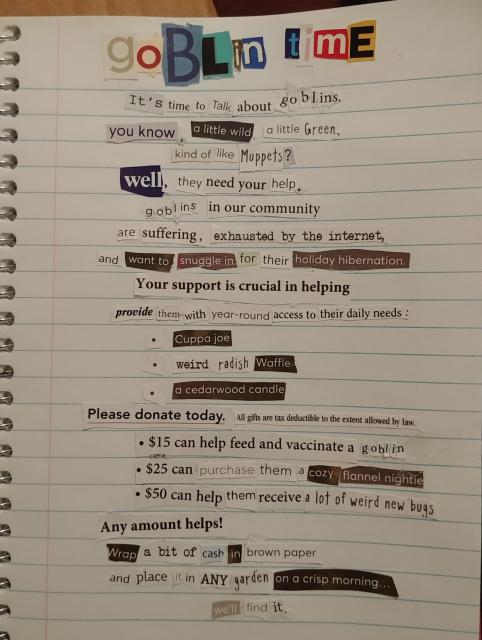 goBLin timE
It's time to Talk about goblins.
you know, a little wild, a little Green,
kind of like Muppets?
well, they need your help.
goblins in our community
are suffering, exhausted by the internet,
and want to snuggle in for their holiday hibernation.
Your support is crucial in helping
provide them with year-round access to their daily needs:
• Cuppa joe
• weird radish Waffle
• a cedarwood candle
Please donate today. All gifts are tax deductible to the extent allowed by law.
• $15 can help feed and vaccinate a goblin
• $25 can purchase them a cozy flannel nightie
• $50 can help them receive a lot of weird new bugs
Any amount helps!
Wrap a bit of cash in brown paper
and place it in ANY garden on a crisp morning...
we'll find it.